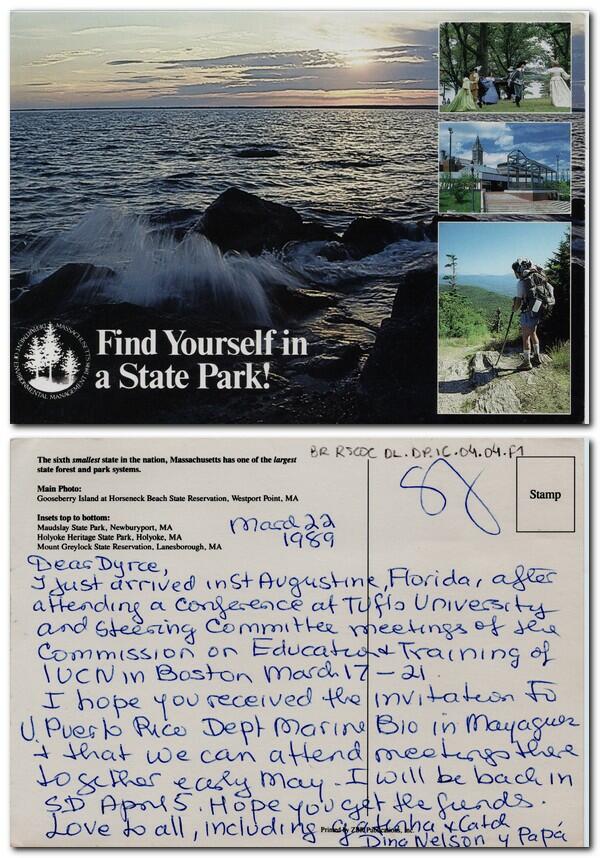 ENVIRONMENTAL MANAGEMENT
Find Yourself in
a State Park!
The sixth smallest state in the nation, Massachusetts has one of the largest
state forest and park systems.
Main Photo:
Gooseberry Island at Horseneck Beach State Reservation, Westport Point, MA
Insets top to bottom:
Maudslay State Park, Newburyport, MA
Holyoke Heritage State Park, Holyoke, MA
Mount Greylock State Reservation, Lanesborough, MA
BR RJCOC DL.DP.1C.04.04.F1
Stamp
March 22
1989
Dear Dyrce,
I just arrived in St Augustine, Florida, after
attending a conference at Tufts University
and Steering Committee meetings of the
Commission on Education & Training of
IUCN in Boston March 17-21.
I hope you received the invitation to
U. Puerto Rico Dept Marine Bio in Mayaguez
& that we can attend meetings there
together early May. I will be back in
SD April 5. Hope you get the funds.
Love to all, including gatinha & Catch
Printed by Publications, Inc.
Dina Nelson y Papá